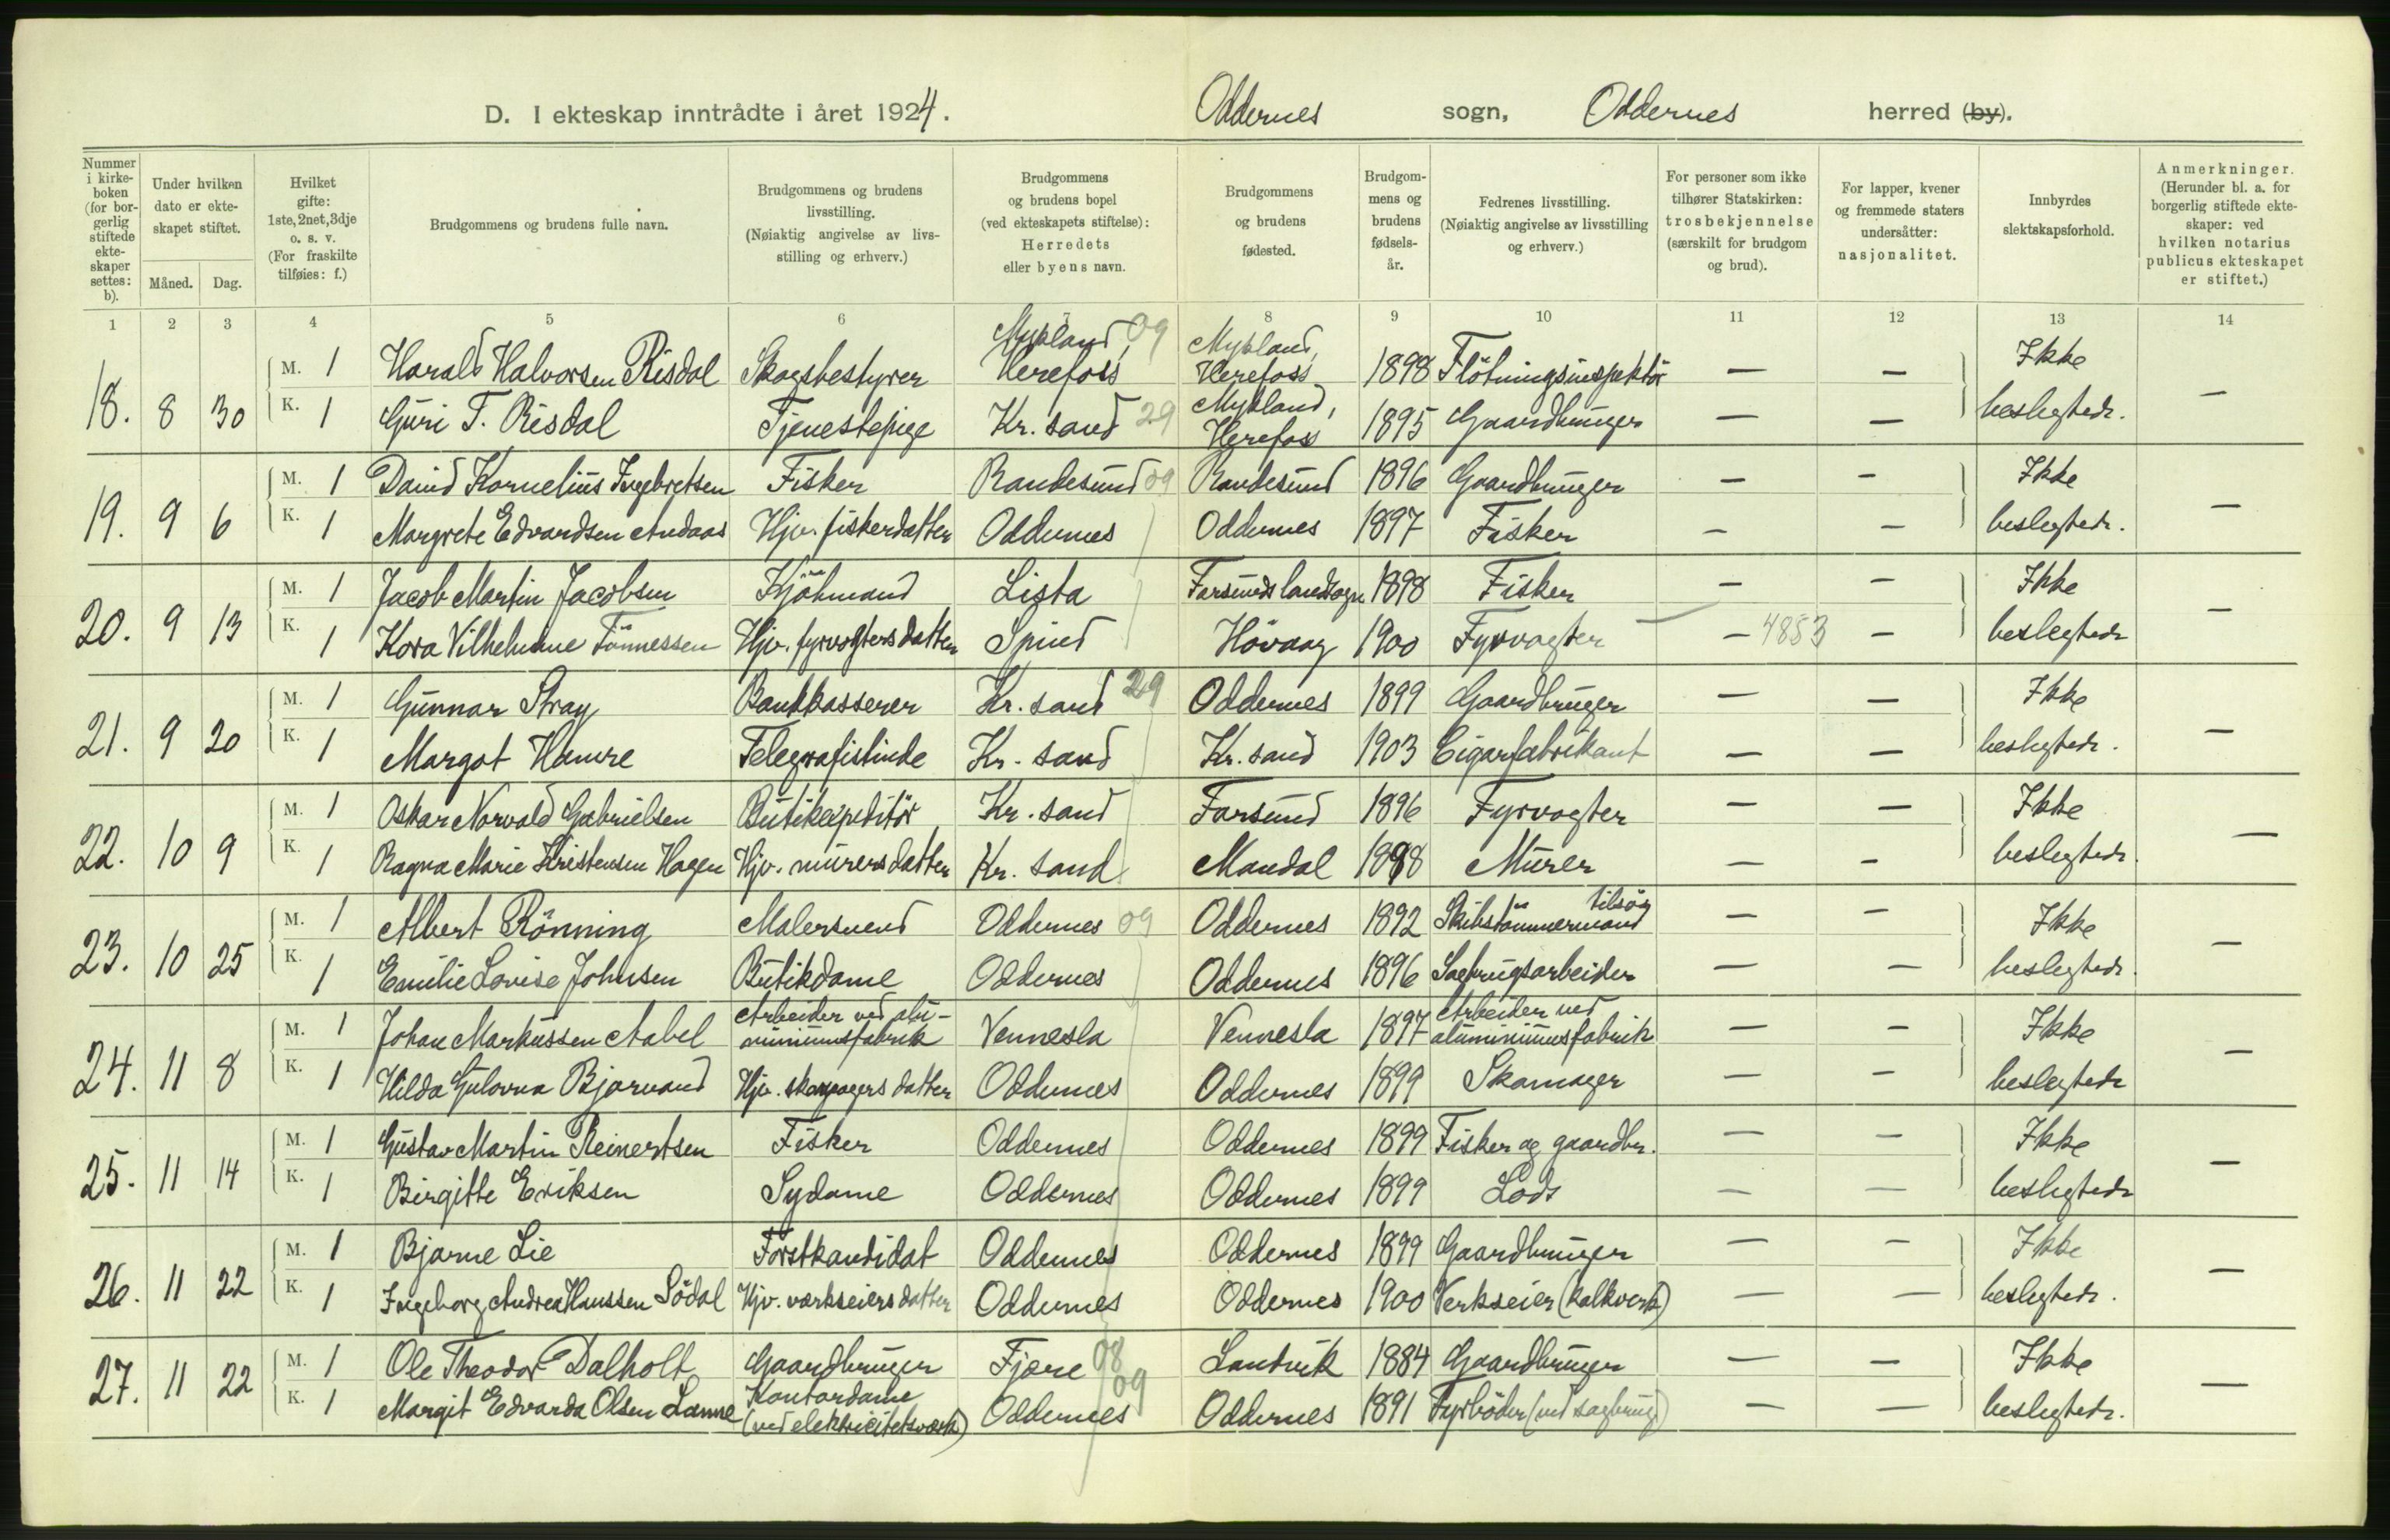 D. I ekteskap inntrådte i året 1924. Oddernes sogn, Oddernes herred (by).
Nummer i kirke-boken (for bor-gerlig stiftede ekte-skaper settes: b).
Under hvilken dato er ekte-skapet stiftet.
Måned. Dag.
Hvilket gifte: 1ste, 2net, 3dje o. s. v. (For fraskilte tilføies: f.)
Brudgommens og brudens fulle navn.
Brudgommens og brudens livsstilling. (Nøiaktig angivelse av livs-stilling og erhverv.)
Brudgommens og brudens bopel (ved ekteskapets stiftelse): Herredets eller byens navn.
Brudgommens og brudens fødested.
Brudgom-mens og brudens fødsels-år.
Fedrenes livsstilling. (Nøiaktig angivelse av livsstilling og erhverv.)
For personer som ikke tilhører Statskirken: trosbekjennelse (særskilt for brudgom og brud).
For lapper, kvener og fremmede staters undersåtter: nasjonalitet.
Innbyrdes slektskapsforhold.
Anmerkninger. (Herunder bl. a. for borgerlig stiftede ekte-skaper: ved hvilken notarius publicus ekteskapet er stiftet.)
1 2 3 4 5 6 7 8 9 10 11 12 13 14
18. 8 30 M. 1 Harald Halvorsen Risdal Skogsbestyrer Mykland, Herefoss 09 Mykland, Herefoss 1898 Flötningsinspektör — — Ikke
K. 1 Guri T. Risdal Tjenestepige Kr. sand 29 Mykland, Herefoss 1895 Gaardbruger — — beslegtede. —
19. 9 6 M. 1 David Kornelius Ingebretsen Fisker Randesund 09 Randesund 1896 Gaardbruger — — Ikke
K. 1 Margrete Edvardsen Andaas Hjv. fiskerdatter Oddernes Oddernes 1897 Fisker — — beslegtede. —
20. 9 13 M. 1 Jacob Martin Jacobsen Kjöbmand Lista Farsunds landsogn 1898 Fisker — — Ikke
K. 1 Kora Vilhelmine Tönnessen Hjv. fyrvogters datter Spind Hövaag 1900 Fyrvogter — 4853 — beslegtede —
21. 9 20 M. 1 Gunnar Stray Bankkasserer Kr. sand 29 Oddernes 1899 Gaardbruger — — Ikke
K. 1 Margot Hamre Telegrafistinde Kr. sand Kr. sand 1903 Cigarfabrikant — — beslegtede. —
22. 10 9 M. 1 Oskar Norvald Gabrielsen Butikexpeditör Kr. sand Farsund 1896 Fyrvogter — — Ikke
K. 1 Ragna Marie Kristensen Hagen Hjv. murers datter Kr. sand Mandal 1898 Murer — — beslegtede. —
23. 10 25 M. 1 Albert Rönning Malersvend Oddernes 09 Oddernes 1892 Skibstömmermand tilsös — — Ikke
K. 1 Emilie Lovise Johnsen Butikdame Oddernes Oddernes 1896 Sagbrugsarbeider — — beslegtede. —
24. 11 8 M. 1 Johan Markussen Aabel Arbeider ved alu-miniumsfabrik Vennesla Vennesla 1897 Arbeider ved aluminiumsfabrik — — Ikke
K. 1 Hilda Gulovna Bjorvand Hjv. skomagers datter Oddernes Oddernes 1899 Skomager — — beslegtede —
25. 11 14 M. 1 Gustav Martin Reinertsen Fisker Oddernes Oddernes 1899 Fisker og gaardbr. — — Ikke
K. 1 Birgitte Eriksen Sydame Oddernes Oddernes 1899 Lods — — beslegtede —
26. 11 22 M. 1 Bjarne Lie Forstkandidat Oddernes Oddernes 1899 Gaardbruger — — Ikke
K. 1 Ingeborg Andrea Hanssen Södal Hjv. verkseiers datter Oddernes Oddernes 1900 Verkseier (kalkverk) — — beslegtede. —
27. 11 22 M. 1 Ole Theodor Dalholt Gaardbruger Fjære 08 Landvik 1884 Gaardbruger — — Ikke
K. 1 Margit Edvarda Olsen Lanne Kontordame (ved elektricitetsverk) Oddernes 09 Oddernes 1891 Fyrböder (ved sagbrug) — — beslegtede. —